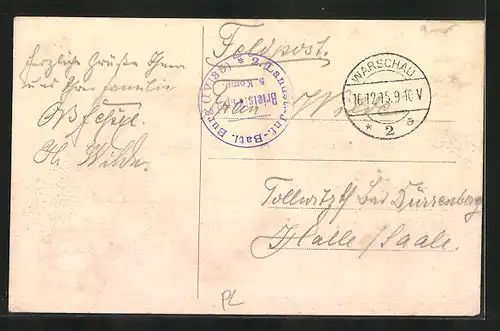 Herzliche Grüße Ihnen
und Ihrer Familie
H. Wilde.
Feldpost.
* 2. Landst.-Inf.-Batl. Burg (IV/35)
Briefst.
5. Komp.
WARSCHAU
16.12.15.9-10 V
* 2 a
Tollwitz bei Dürrenberg
Halle/Saale.
PL